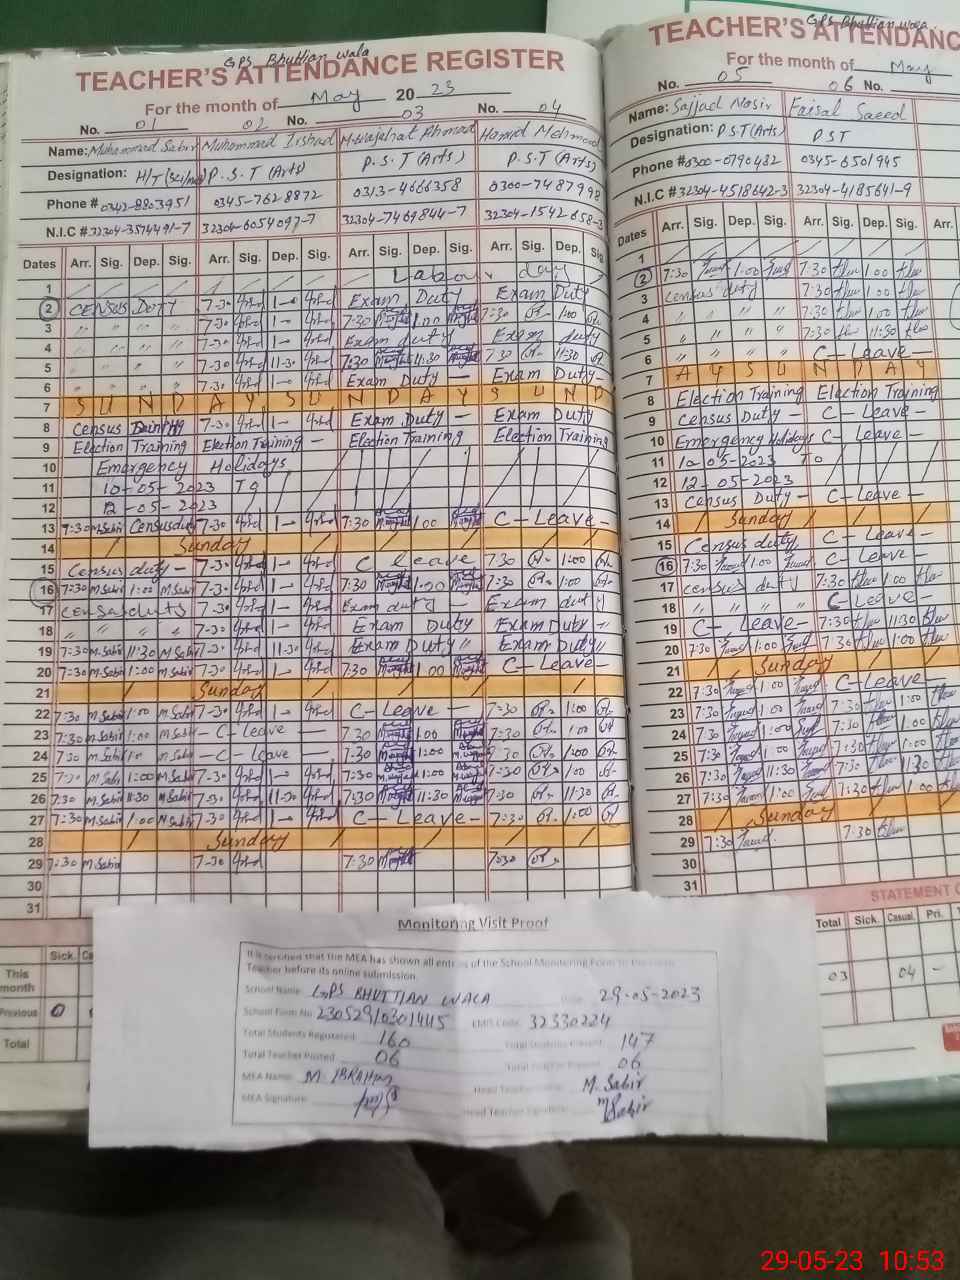 GPS Bhuttian wala
TEACHER'S ATTENDANCE REGISTER
For the month of May 2023
No. 01 02 No. 03 No. 04
Name: Muhammad Sabir Muhammad Irshad M.Wajahat Ahmad Hamid Mehmood
Designation: H/T P.S.T (Arts) P.S.T (Arts) P.S.T (Arts)
Phone # 0342-8803951 0345-7628872 0313-4666358 0300-7487998
N.I.C # 32304-3574491-7 32304-6054097-7 32304-7469844-7 32304-1542658-3
Dates Arr. Sig. Dep. Sig. Arr. Sig. Dep. Sig. Arr. Sig. Dep. Sig. Arr. Sig. Dep. Sig.
1 Labour day
2 Census Duty 7-30 1-0 Exam Duty Exam Duty
3 " " " " 7-30 1- 7:30 1:00 7:30 1:00
4 " " " " 7-30 1- Exam duty Exam duty
5 " " " " 7-30 11-30 7:30 11:30 7:30 11:30
6 " " " " 7-30 1- Exam Duty — Exam Duty -
7 S U N D A Y S U N D A Y S U N D
8 Census 7-30 1- Exam Duty Exam Duty
9 Election Training Election Training — Election Training Election Training
10 Emergency Holidays
11 10-05-2023 To
12 12-05-2023
13 7:30 M.Sabir Census duty 7-30 1-0 7:30 1:00 C-Leave -
14 Sunday
15 Census duty - 7-30 1-0 C leave 7:30 1:00
16 7:30 M Sabir 1:00 M Sabir 7-30 1-0 7:30 1:00 7:30 1:00
17 Census duty 7-30 1-0 Exam duty — Exam duty
18 " " " " 7-30 1-0 Exam Duty Exam Duty -
19 7:30 M Sabir 11:30 M Sabir 7-30 11-30 Exam Duty " Exam Duty "
20 7:30 M Sabir 1:00 M Sabir 7-30 1-0 7:30 1:00 C-Leave-
21 Sunday
22 7:30 M Sabir 1:00 M Sabir 7-30 1-0 C-Leave - 7:30 1:00
23 7:30 M Sabir 1:00 M Sabir - C-Leave 7:30 1:00 7:30 1:00
24 7:30 M Sabir 1:00 M Sabir - C-Leave — 7:30 1:00 7:30 1:00
25 7:30 M Sabir 1:00 M Sabir 7-30 1-0 7:30 1:00 7:30 1:00
26 7:30 M Sabir 11:30 M Sabir 7-30 11-30 7:30 11:30 7:30 11:30
27 7:30 M Sabir 1:00 M Sabir 7-30 1-0 C-Leave- 7:30 1:00
28 Sunday
29 7:30 M Sabir 7-30 7:30 7:30
30
31
Sick.
This month
Previous 0
Total
GPS Bhuttian wala
TEACHER'S ATTENDANC
For the month of May
No. 05 06 No.
Name: Sajjad Nasir Faisal Saeed
Designation: P.S.T (Arts) PST
Phone # 0300-0790482 0345-6501945
N.I.C # 32304-4518642-3 32304-4185641-9
Dates Arr. Sig. Dep. Sig. Arr. Sig. Dep. Sig. Arr.
1
2 7:30 1:00 7:30 1:00
3 Census duty 7:30 1:00
4 " " " " 7:30 1:00
5 " " " " 7:30 11:30
6 " " " " C-Leave -
7 S U N D A Y
8 Election Training Election Training
9 Census Duty - C-Leave -
10 Emergency Holidays C-Leave -
11 10-05-2023 To
12 12-05-2023
13 Census Duty - C-Leave -
14 Sunday
15 Census duty C-Leave -
16 7:30 1:00 C-Leave -
17 census duty 7:30 1:00
18 " " " " C-Leave -
19 C-Leave- 7:30 11:30
20 7:30 1:00 7:30 1:00
21 Sunday
22 7:30 1:00 C-Leave-
23 7:30 1:00 7:30 1:00
24 7:30 1:00 7:30 1:00
25 7:30 1:00 7:30 1:00
26 7:30 11:30 7:30 11:30
27 7:30 1:00 7:30 1:00
28 Sunday
29 7:30 7:30
30
31
STATEMENT O
Total Sick. Casual. Pri.
03 04 -
Monitoring Visit Proof
It is certified that the MEA has shown all entries of the School Monitoring Form to the
Teacher before its online submission.
School Name GPS BHUTTIAN WALA 29-05-2023
School Form No 230529/0301445 EMIS Code 32330224
Total Students Registered 160 Total Students Present 147
Total Teacher Posted 06 06
MEA Name: M. IBRAHIM Head Teacher M. Sabir
MEA Signature: Head Teacher Signature MSabir
29-05-23 10:53